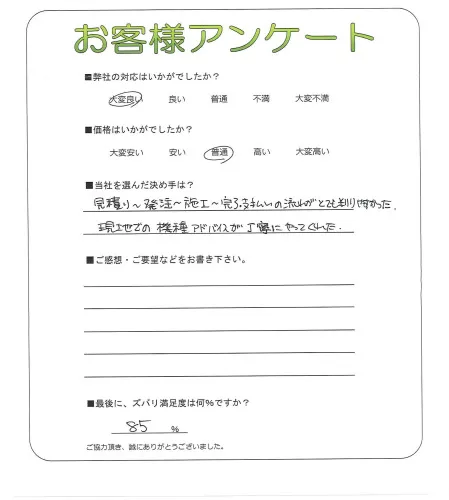 お客様アンケート
■弊社の対応はいかがでしたか?
大変良い 良い 普通 不満 大変不満
■価格はいかがでしたか?
大変安い 安い 普通 高い 大変高い
■当社を選んだ決め手は?
見積り～発注～施工～完了支払いの流れがとても判りやすかった.
現地での機種アドバイスが丁寧にやってくれた.
■ご感想・ご要望などをお書き下さい。
■最後に、ズバリ満足度は何%ですか?
85 %
ご協力頂き、誠にありがとうございました。